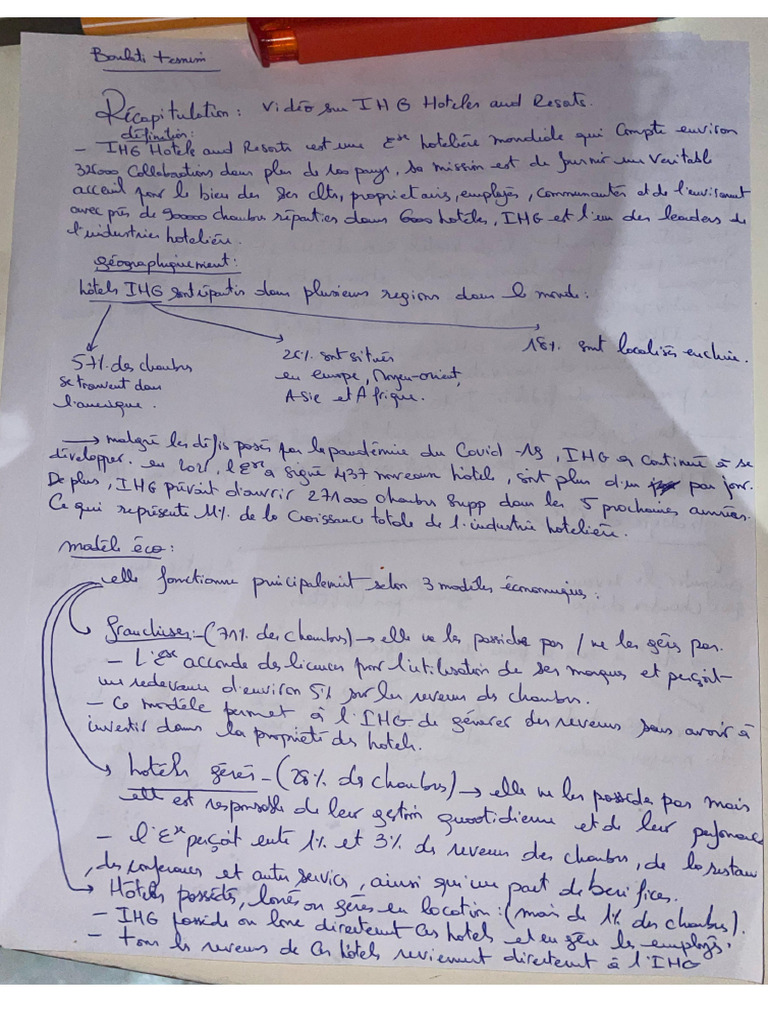 Récapitulation: Vidéo sur IHG Hotels and Resorts.
définition:
- IHG Hotels and Resorts est une Ese hotelière mondiale qui Compte environ
325000 Collaborations dans plus de 100 pays, Sa mission est de fournir un veritable
acceuil pour le bien des Ses clts, proprietairs, employés, communautés et de l'environnt
avec près de 900000 chambres réparties dans 6000 hotels, IHG est l'un des leaders de
l'industries hotelière.
géographiquement:
hôtels IHG sont répartis dans plusieurs regions dans le monde:
57% des chambres
se trouvent dans
l'amerique.
26% sont situés
en europe, Moyen-orient,
Asie et Afrique.
18% sont localisés en chine.
→ malgré les défis posés par la pandémie du Covid-19, IHG a continué à se
développer. en 2021, l'Ese a signé 437 nouveaux hôtels, soit plus d'un par jour.
De plus, IHG prévoit d'ouvrir 271000 chambres supp dans les 5 prochaines années.
Ce qui représente 11% de la Croissance totale de l'industrie hotelière.
modèle éco:
elle fonctionne principalement selon 3 modèles économiques:
franchises:-(71% des chambres) → elle ne les possède pas / ne les gérs pas.
- L'Ese accorde des licences pour l'utilisation de ses marques et perçoit
un redevance d'environ 5% sur les revenus ds chambres.
- Ce modèle permet à l'IHG de générer des revenus sans avoir à
investir dans la propriété des hotels.
hotels gérés - (28% des chambres) → elle ne les possède pas mais
elle est responsable de leur gestion quotidienne et de leur performance
- l'Ese perçoit ente 1% et 3% ds revenus des chambres, de la restau
, des conferences et autres services, ainsi qu'une part de benifices.
Hôtels possédés, loués ou gérés en location: (mois de 1% des chambres).
- IHG possède ou loue directement ces hotels et en gère les employés.
- tous les revenus de ces hôtels reviennent directement à l'IHG